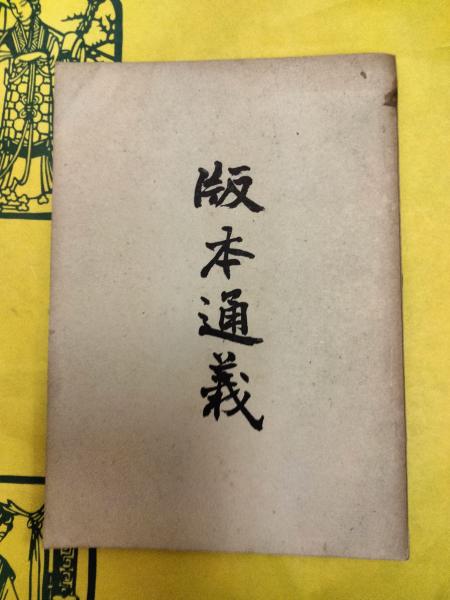 版本通義